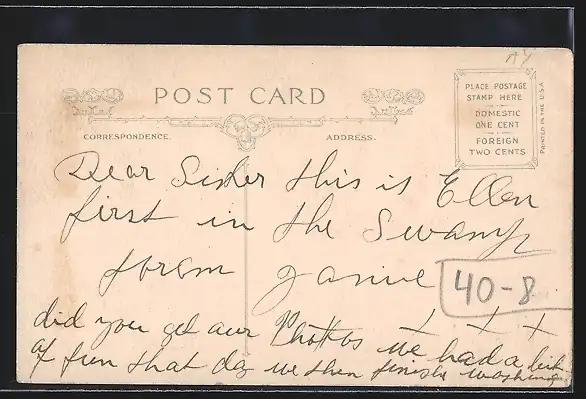 NY
POST CARD
PLACE POSTAGE
STAMP HERE
DOMESTIC
ONE CENT
FOREIGN
TWO CENTS
PRINTED IN THE U.S.A
CORRESPONDENCE.
ADDRESS.
Dear Sister this is Ellen
first in the Swamp
from Janie
40-8
x x x
did you get our Phottos we had a bit
of fun that day we then finish washing